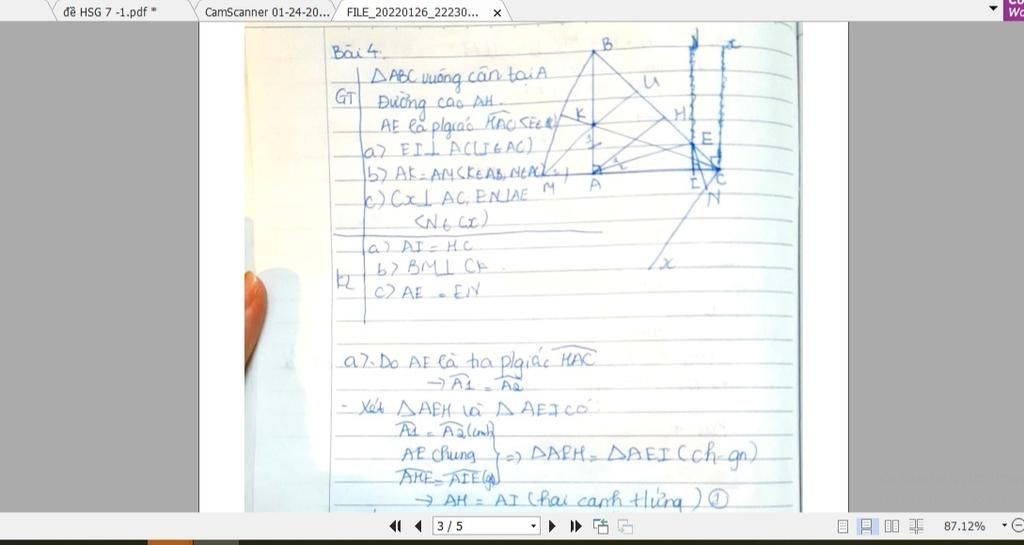 đề HSG 7 -1.pdf *
CamScanner 01-24-20...
FILE_20220126_22230...
Bài 4.
GT
ΔABC vuông cân tại A
Đường cao AH.
AE là p/giác HAC
a> EI⊥ AC(I∈AC)
b> AK=AM(K∈AB,
c) Cx⊥ AC, EN⊥AE
(N∈Cx)
KL
a) AI = HC
b> BM⊥ CK.
c> AE = EN
B
U
K
H
E
M
A
I
C
N
x
x
a>. Do AE là tia p/giác HAC
→ A1 = A2
- Xét ΔAEH và ΔAEI có
A1 = A2 (cmt)
AE chung
AHE = AIE
=> ΔAEH = ΔAEI (ch-gn)
→ AH = AI (hai cạnh tứng) ①
3 / 5
87.12%